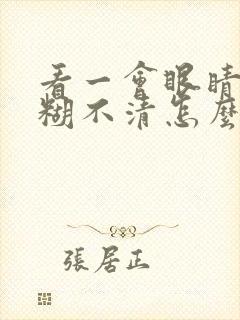 看一會眼睛
糊不清怎麼
張居正